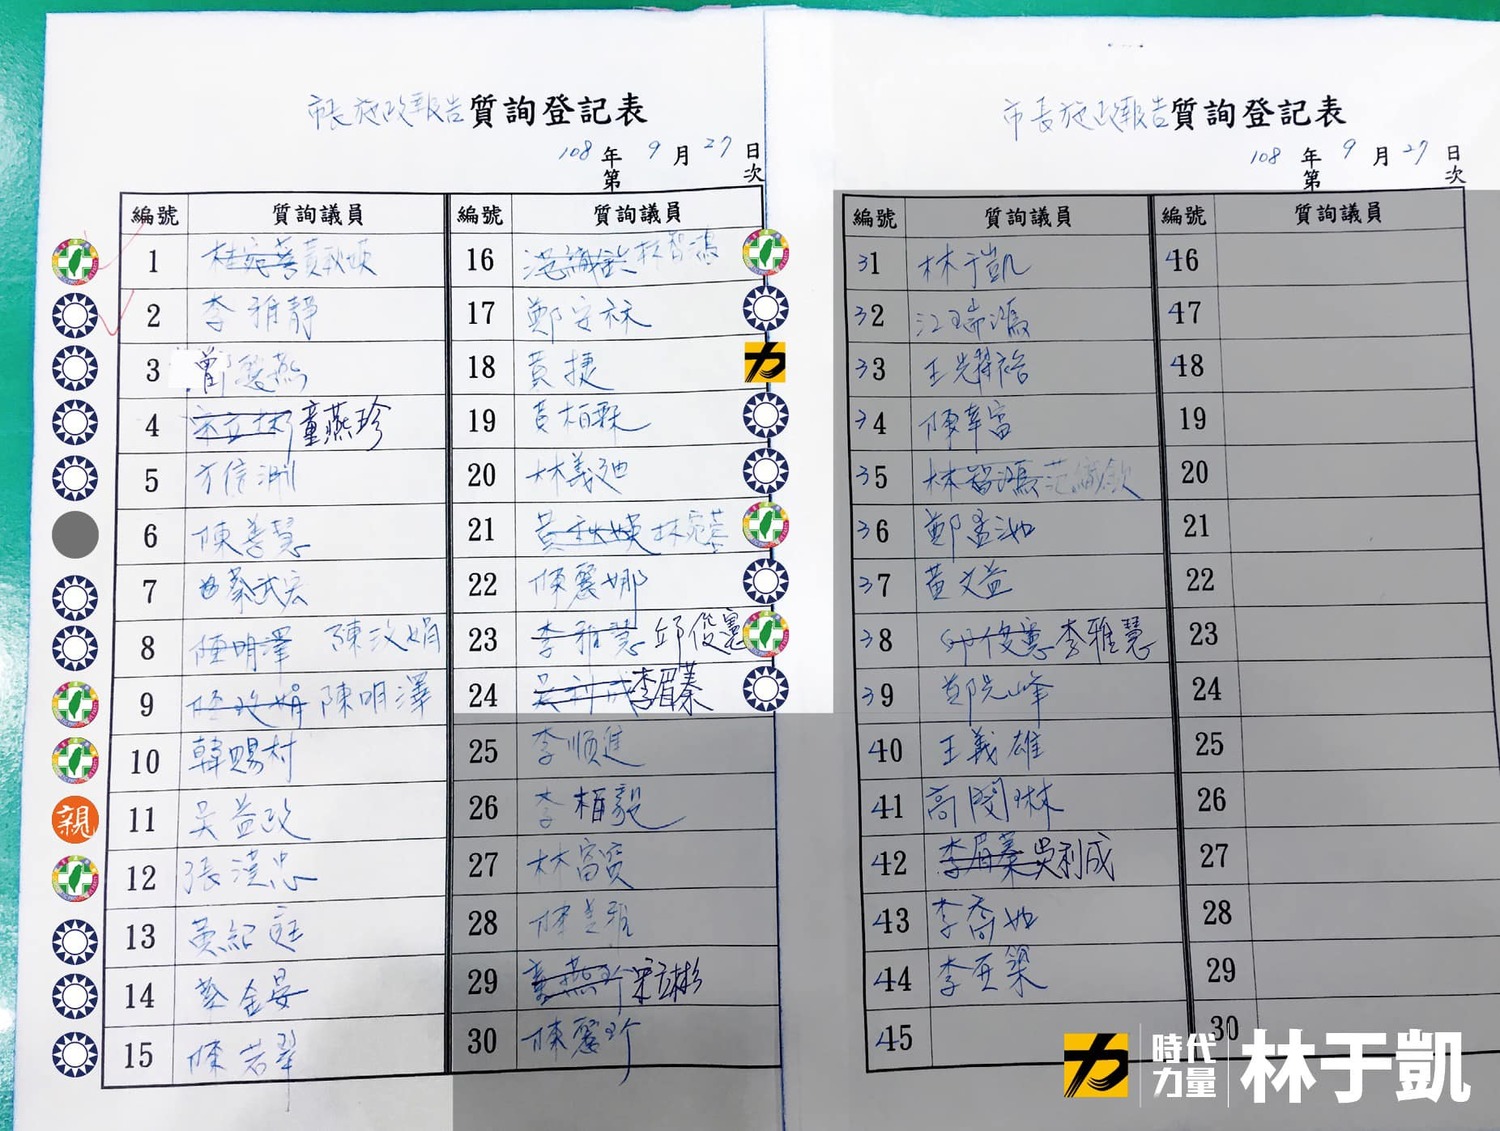 市長施政報告質詢登記表
108年9月27日
第 次
編號 質詢議員 編號 質詢議員
1 黃秋媖
2 李雅靜
3 鄭
4 宋立彬 童燕珍
5 方信淵
6 陳善慧
7 蔡武宏
8 陳明澤 陳玫娟
9 陳玫娟 陳明澤
10 韓賜村
11 吳益政
12 張漢忠
13 黃紹庭
14 蔡金晏
15 陳若翠
16 范織欽 林智鴻
17 鄭安秝
18 黃捷
19 黃柏霖
20 林義迪
21 黃秋媖 林宛蓉
22 陳麗娜
23 李雅慧 邱俊憲
24 吳利成 李眉蓁
25 李順進
26 李柏毅
27 林富寶
28 陳美雅
29 童燕珍 宋立彬
30 陳麗珍
親
市長施政報告質詢登記表
108年9月27日
第 次
編號 質詢議員 編號 質詢議員
31 林于凱
32 江瑞鴻
33 王耀裕
34 陳幸富
35 林智鴻 范織欽
36 鄭孟洳
37 黃文益
38 邱俊憲 李雅慧
39 鄭光峰
40 王義雄
41 高閔琳
42 李眉蓁 吳利成
43 李喬如
44 李亞築
45
46
47
48
19
20
21
22
23
24
25
26
27
28
29
30
時代力量 林于凱